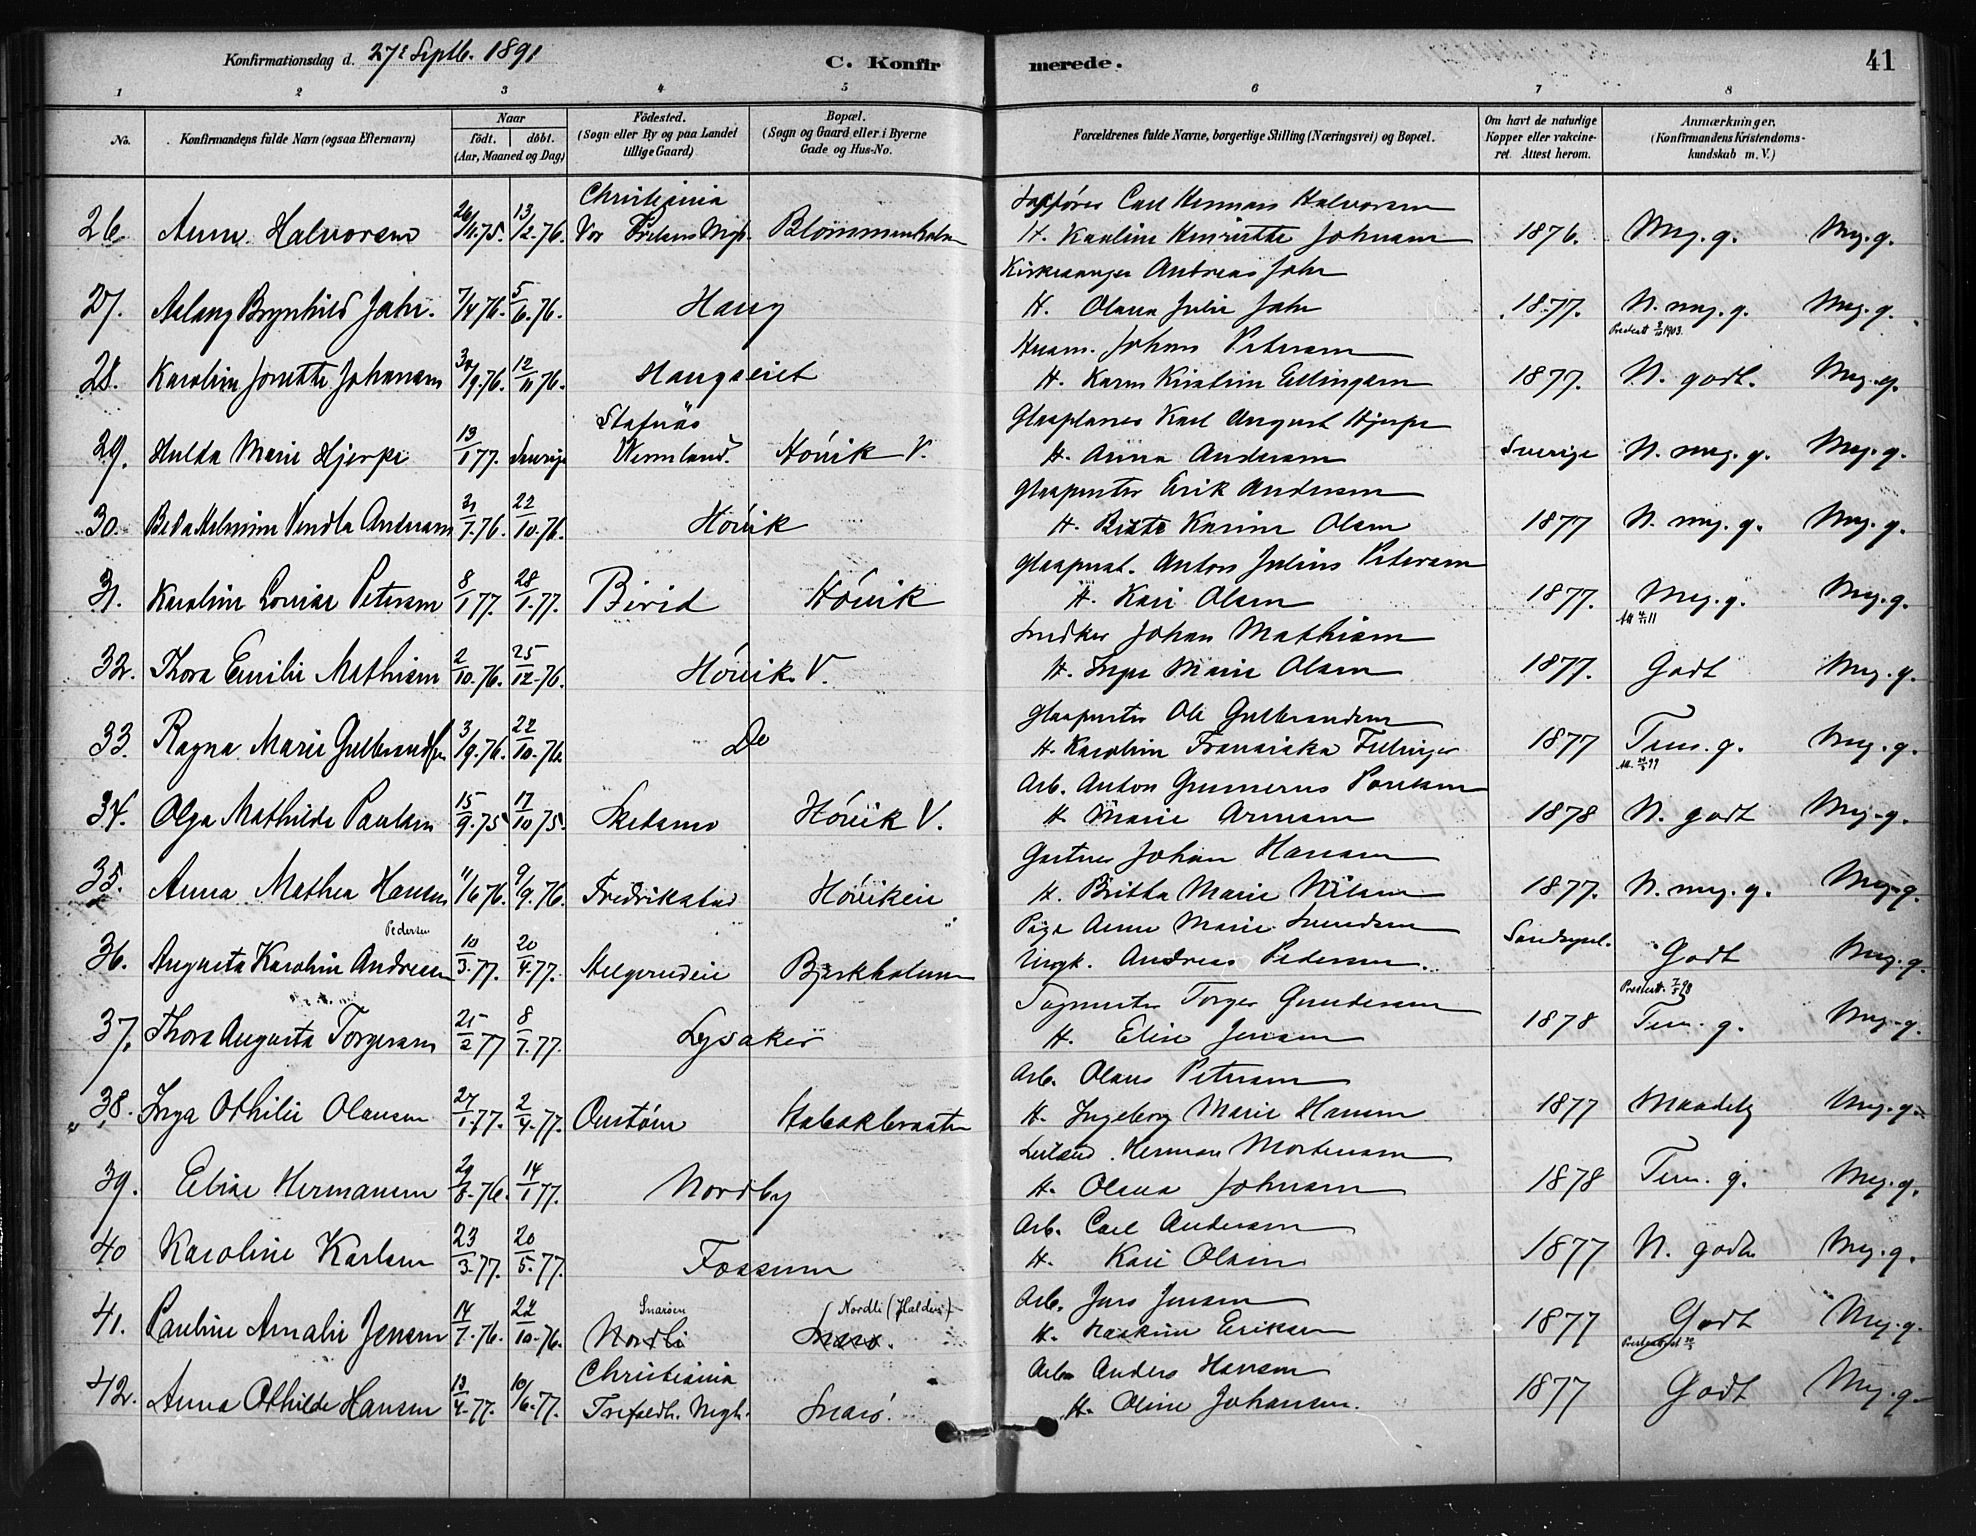 Konfirmationsdag d. 27de Septb. 1891
C. Konfirmerede.
41
1 2 3 4 5 6 7 8
No.
Konfirmandens fulde Navn (ogsaa Efternavn)
Naar
födt. döbt.
(Aar, Maaned og Dag)
Födested.
(Sogn eller By og paa Landet
tillige Gaard)
Bopæl.
(Sogn og Gaard eller i Byerne
Gade og Hus-No.
Forældrenes fulde Navne, borgerlige Stilling (Næringsvei) og Bopæl.
Om havt de naturlige
Kopper eller vakcine-
ret. Attest herom.
Anmærkninger,
(Konfirmandens Kristendoms-
kundskab m. V.)
Christiania Carl Herman Halvorsen
26. Anna Halvorsen 26/11.75. 13/2.76. Vor Frelsers Mgh. Blommenholm H. Karoline Henriette Johnsen 1876. Mg. g. Mg. g.
Kirkesanger Andreas Jahr
27. Aslaug Brynhild Jahr. 7/4 76. 5/6.76. Haug H. Olava Julie Jahr 1877. N. mg. g. Mg. g.
1903.
Husm. Johans Petersen
28. Karoline Jonette Johansen 30/9.76. 12/11 76. Haugseiet H. Karen Kirstine Ellingsen 1877. N. godt. Mg. g.
Stafnäs Karl August Hjerpe
29. Hulda Marie Hjerpe 13/1 77. Sverige Wermland. Hövik V. H. Anna Andersen Sverige N. mg. g. Mg. g.
Glaspuster Erik Andersen
30. Beda Helmine Vendla Andersen 31/7.76. 22/10.76. Hövik H. Karine Olsen 1877 N. mg. g. Mg. g.
Glaspust. Anton Julius Petersen
31. Karoline Louise Petersen 8/1 77. 28/1.77. Birid Hövik H. Kari Olsen 1877. Mg. g. Mg. g.
Snedker Johan Mathisen
32. Thora Emilie Mathisen 2/10.76. 25/12.76. Hövik V. H. Inge Marie Olsen 1877. Godt Mg. g.
Glaspuster Ole Gulbrandsen
33. Ragna Marie Gulbrandsen 3/9.76. 22/10.76. Do H. Karoline Fransiska 1877 Tem. g. Mg. g.
Arb. Anton Gunnerus Paulsen
34. Olga Mathilde Paulsen 15/9.75 17/10 75. Skedsmo Hövik V. H. Marie Arnesen 1878 N. godt Mg. g.
Gartner Johan Hansen
35. Anna Mathea Hansen 11/6 76. 9/9.76. Fredrikstad Hövikeie H. Britha Marie Nilsen 1877. N. mg. g. Mg. g.
Pedersen Pige Anne Marie Svendsen
36. Augusta Karoline Andresen 10/3.77. 20/4.77. Helgerudeie Bjerkholmen Ungk. Andreas Pedersen. Sandsynl. Godt Mg. g.
Torger Gundersen
37. Thora Augusta Torgersen 25/2 77 8/7.77. Lysaker H. Elise Jensen 1878 Tem. g. Mg. g.
Arb. Olaus Petersen
38. Inga Othilie Olausen 27/1.77. 2/4.77. Onstöm Stabækbraaten H. Ingeborg Marie Hansen 1877 Maadelig Mg. g.
Herman Mortensen
39. Elise Hermansen 29/8.76. 14/1 77. Nordby H. Olava Johnsen 1878 Tem. g. Mg. g.
Arb. Carl Andersen
40 Karoline Karlsen 23/3.77. 20/5.77. Fossum H. Kari Olsen 1877 N. godt Mg. g.
Snaröen Nordli (Halden) Arb. Jens Jensen
41. Pauline Amalie Jensen 14/7.76. 22/10.76. Nordli Snarö. H. Maskine Eriksen 1877 Godt Mg. g.
Christiania Arb. Anders Hansen
42. Anna Othilde Hansen 13/4.77. 10/6.77. Trefoldh. Mgh. Snarö. H. Oline Johansen. 1877 Godt Mg. g.